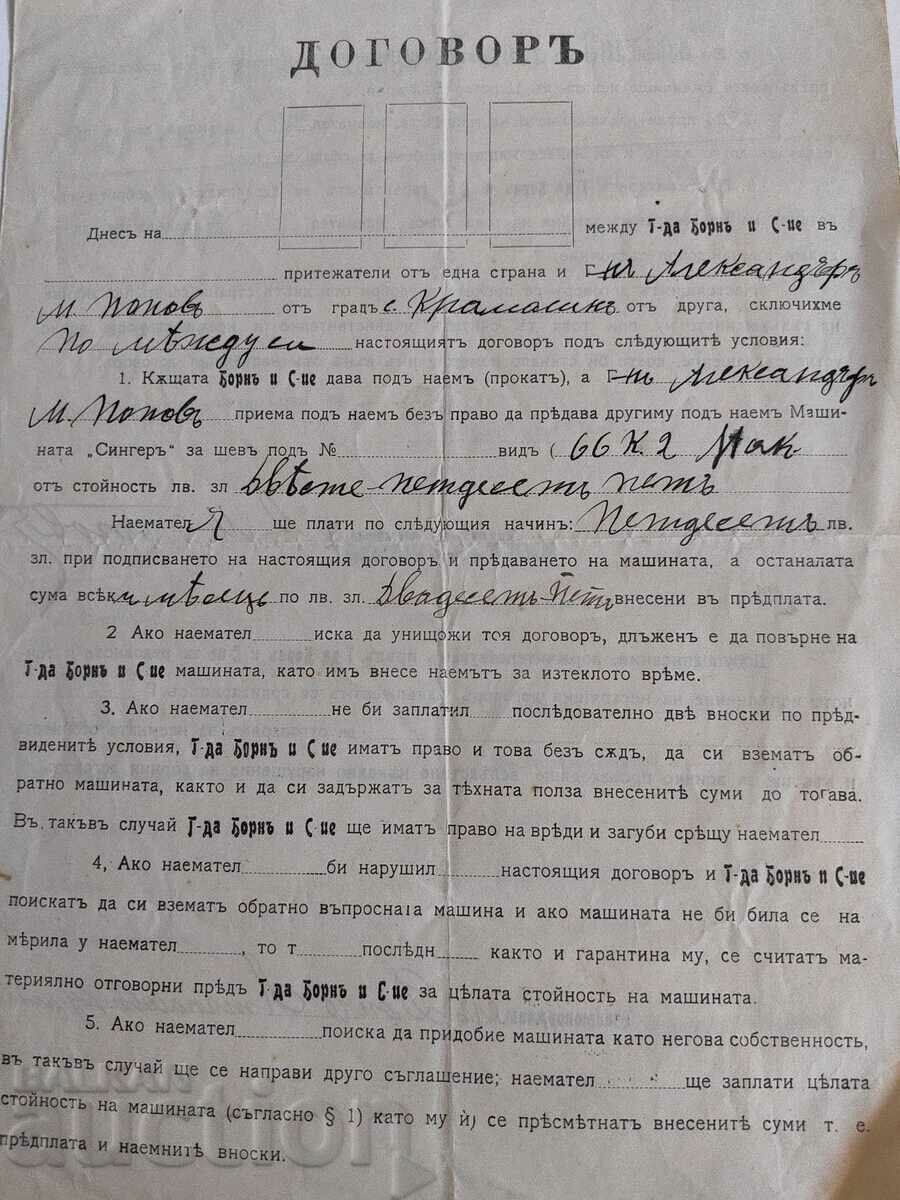 ДОГОВОРЪ
Днесъ на между Г-да Борнъ и С-ие въ
притежатели отъ една страна и Г-нъ Александъръ
М. Поповъ отъ градъ с. Крамолинъ отъ друга, сключихме
по между си настоящиятъ договоръ подъ слѣдующитѣ условия:
1. Кѫщата Борнъ и С-ие дава подъ наемъ (прокатъ), а Г-нъ Александъръ
М. Поповъ приема подъ наемъ безъ право да прѣдава другиму подъ наемъ Маши-
ната „Сингеръ“ за шевъ подъ № видъ ( 66 К. 2
отъ стойность лв. зл Двѣсте петдесетъ петь
Наемател я ще плати по слѣдующия начинъ: Петдесетъ лв.
зл. при подписването на настоящия договоръ и прѣдаването на машината, а останалата
сума всѣки мѣсецъ по лв. зл. Двадесетъ-петь внесени въ прѣдплата.
2 Ако наемател иска да унищожи тоя договоръ, длъженъ е да повърне на
Г-да Борнъ и С-ие машината, като имъ внесе наемътъ за изтеклото врѣме.
3. Ако наемател не би заплатил послѣдователно двѣ вноски по прѣд-
виденитѣ условия, Г-да Борнъ и С-ие иматъ право и това безъ сѫдъ, да си взематъ об-
ратно машината, както и да си задържатъ за тѣхната полза внесенитѣ суми до тогава.
Въ такъвъ случай Г-да Борнъ и С-ие ще иматъ право на врѣди и загуби срѣщу наемател
4, Ако наемател би нарушил настоящия договоръ и Г-да Борнъ и С-ие
поискатъ да си взематъ обратно въпросната машина и ако машината не би била се на
мѣрила у наемател , то т послѣдн както и гарантина му, се считатъ ма-
териялно отговорни прѣдъ Г-да Борнъ и С-ие за цѣлата стойность на машината.
5. Ако наемател поиска да придобие машината като негова собственность,
въ такъвъ случай ще се направи друго съглашение; наемател ще заплати цѣлата
стойность на машината (съгласно § 1) като му й) се прѣсмѣтнатъ внесенитѣ суми т. е.
прѣдплата и наемнитѣ вноски.
auction